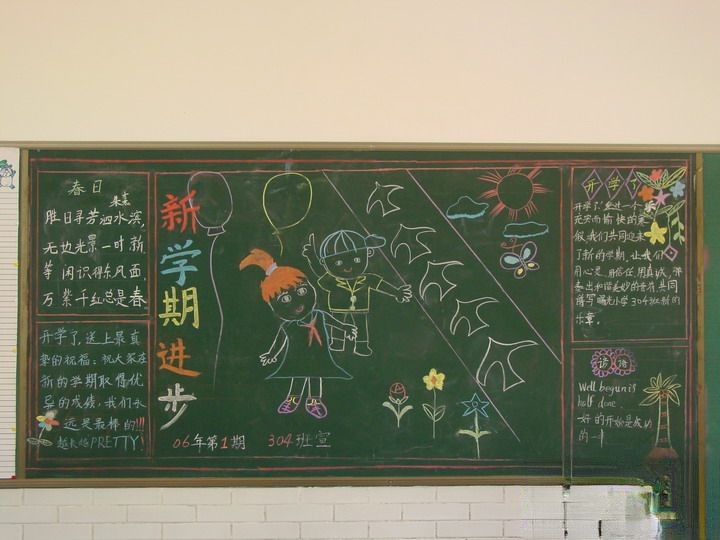 春日
朱熹
胜日寻芳泗水滨,
无边光景一时新
等闲识得东风面
万紫千红总是春
开学了,送上最真
挚的祝福:祝大家在
新的学期取得优
异的成绩,我们永
远是最棒的!!!
越长越PRETTY!
新
学
期
进
步
06年第1期 304班宣
开学了
开学了,经过一个
充实而愉快的寒
假,我们共同迎来
了新的学期,让我们
用心灵、用信任、用真诚,弹
奏出和谐美妙的音符,共同
谱写曙光小学304班新的
乐章。
谚语
Well begun is
half done.
好的开始是成功
的一半